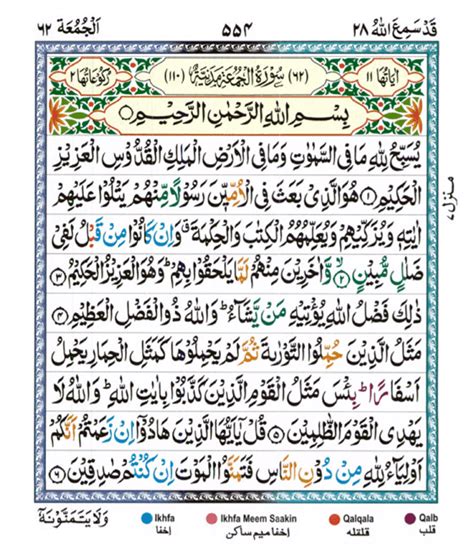 قَدْ سَمِعَ اللّٰهُ ٢٨ ٥٥٤ اَلْجُمُعَة ٦٢
اٰيَاتُهَا ١١ (٦٢) سُوْرَةُ الْجُمُعَةِ مَدَنِيَّةٌ (١١٠) رُكُوْعَاتُهَا ٢
بِسْمِ اللّٰهِ الرَّحْمٰنِ الرَّحِيْمِ
يُسَبِّحُ لِلّٰهِ مَا فِى السَّمٰوٰتِ وَمَا فِى الْاَرْضِ الْمَلِكِ الْقُدُّوْسِ الْعَزِيْزِ
الْحَكِيْمِ ۝١ هُوَ الَّذِىْ بَعَثَ فِى الْاُمِّيّٖنَ رَسُوْلًا مِّنْهُمْ يَتْلُوْا عَلَيْهِمْ
اٰيٰتِهٖ وَيُزَكِّيْهِمْ وَيُعَلِّمُهُمُ الْكِتٰبَ وَالْحِكْمَةَ ۗ وَاِنْ كَانُوْا مِنْ قَبْلُ لَفِىْ
ضَلٰلٍ مُّبِيْنٍ ۝٢ وَّاٰخَرِيْنَ مِنْهُمْ لَمَّا يَلْحَقُوْا بِهِمْ ؕ وَهُوَ الْعَزِيْزُ الْحَكِيْمُ ۝٣
ذٰلِكَ فَضْلُ اللّٰهِ يُؤْتِيْهِ مَنْ يَّشَآءُ ؕ وَاللّٰهُ ذُو الْفَضْلِ الْعَظِيْمِ ۝٤
مَثَلُ الَّذِيْنَ حُمِّلُوا التَّوْرٰىةَ ثُمَّ لَمْ يَحْمِلُوْهَا كَمَثَلِ الْحِمَارِ يَحْمِلُ
اَسْفَارًا ؕ بِئْسَ مَثَلُ الْقَوْمِ الَّذِيْنَ كَذَّبُوْا بِاٰيٰتِ اللّٰهِ ؕ وَاللّٰهُ لَا
يَهْدِى الْقَوْمَ الظّٰلِمِيْنَ ۝٥ قُلْ يٰۤاَيُّهَا الَّذِيْنَ هَادُوْۤا اِنْ زَعَمْتُمْ اَنَّكُمْ
اَوْلِيَآءُ لِلّٰهِ مِنْ دُوْنِ النَّاسِ فَتَمَنَّوُا الْمَوْتَ اِنْ كُنْتُمْ صٰدِقِيْنَ ۝٦
منزل ٧
وَلَا يَتَمَنَّوْنَهٗۤ
Ikhfa Ikhfa Meem Saakin Qalqala Qalb
اخفا اخفا میم ساکن قلقله قلب